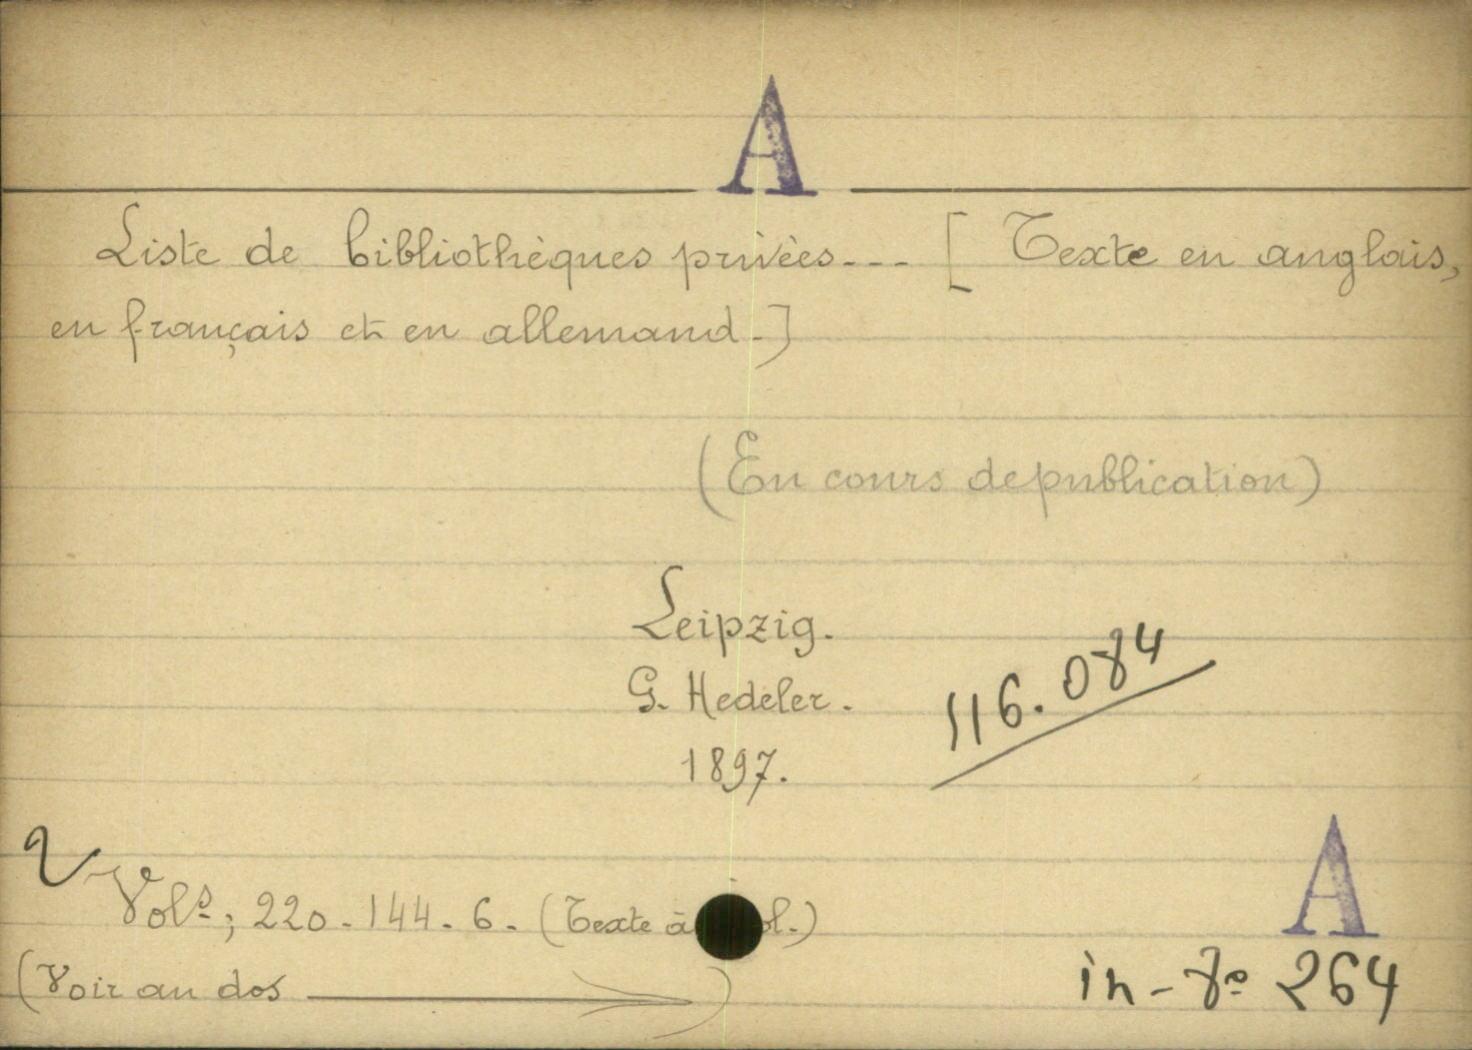 A
Liste de bibliothèques privées... [Texte en anglais,
en français et en allemand.]
(En cours de publication)
Leipzig.
G. Hedeler.
1897.
116.084
2 Vols; 220-144-6. (Texte à
A
(Voir au dos →)
in-8º 264